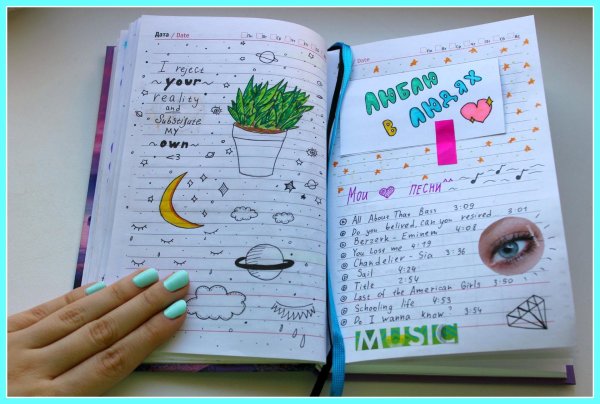 Дата / Date
I reject
~your~
reality
and
Substitute
MY
~own~
<3
/ Date
ЛЮБЛЮ
В
ЛЮДЯХ
Мои песни
All About That Bass 3:09
Do you belived can you resived 3:01
Berzerk - Eminem 4:08
You Lose me 4:19
Chandelier - Sia 3:36
Sail 4:24
Title 2:54
Last of the American Girls 3:50
Schooling life 4:53
Do I wanna know? 3:54
MUSIC